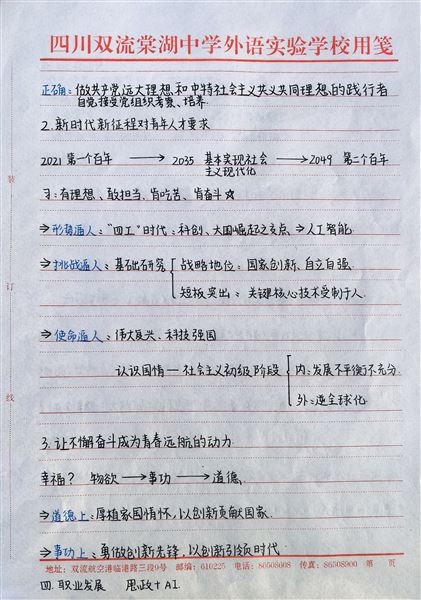 四川双流棠湖中学外语实验学校用笺
正确：做共产党远大理想和中特社会主义共义共同理想的践行者
自觉接受党组织考察、培养
2. 新时代新征程对青年人才要求
2021 第一个百年 → 2035 基本实现社会主义现代化 → 2049 第二个百年
装
习：有理想、敢担当、肯吃苦、肯奋斗☆
⇒形势逼人："四工"时代：科创、大国崛起之支点 ⇒人工智能
⇒挑战逼人：基础研究 { 战略地位：国家创新、自立自强
订
短板突出：关键核心技术受制于人
⇒使命逼人：伟大复兴、科技强国
认识国情—社会主义初级阶段 { 内：发展不平衡不充分
线
外：逆全球化
3. 让不懈奋斗成为青春远航的动力
幸福？ 物欲 → 事功 → 道德
⇒道德上：厚植家国情怀，以创新贡献国家
⇒事功上：勇做创新先锋，以创新引领时代
地址：双流航空港临港路三段9号 邮编：610225 电话：86508608 传真：86508900 第 页
四. 职业发展 思政+AI.